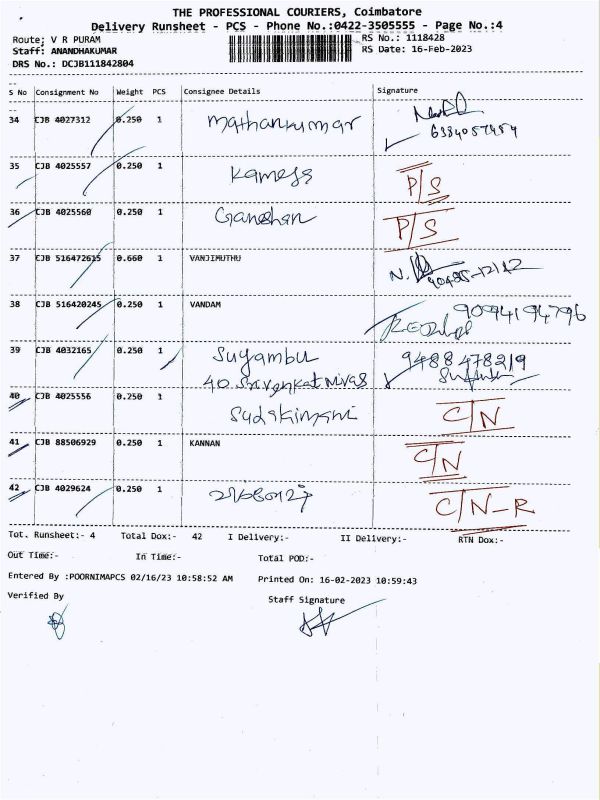 THE PROFESSIONAL COURIERS, Coimbatore
Delivery Runsheet - PCS - Phone No.:0422-3505555 - Page No.:4
Route; V R PURAM RS No.: 1118428
Staff: ANANDHAKUMAR RS Date: 16-Feb-2023
DRS No.: DCJB111842804
S No Consignment No Weight PCS Consignee Details Signature
34 CJB 4027312 0.250 1 Mathankumar
6384057454
35 CJB 4025557 0.250 1 Kamesh P/S
36 CJB 4025560 0.250 1 Ganeshan P/S
37 CJB 516472615 0.660 1 VANJIMUTHU N.
38 CJB 516420245 0.250 1 VANDAM 9094194796
39 CJB 4032165 0.250 1 Suyambu 9488478219
40. Srivenkat Nivas
40 CJB 4025556 0.250 1 Sudakimani C/N
41 CJB 88506929 0.250 1 KANNAN C/N
42 CJB 4029624 0.250 1 C/N-R
Tot. Runsheet:- 4 Total Dox:- 42 I Delivery:- II Delivery:- RTN Dox:-
Out Time:- In Time:- Total POD:-
Entered By :POORNIMAPCS 02/16/23 10:58:52 AM Printed On: 16-02-2023 10:59:43
Verified By Staff Signature